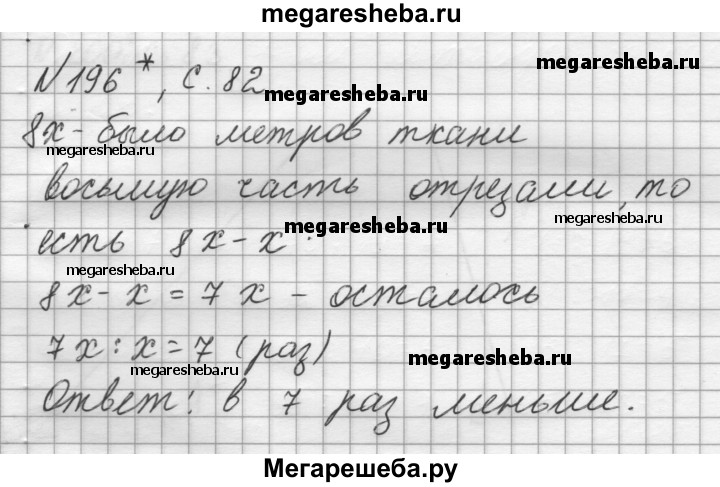 megaresheba.ru
№196*, с. 82
megaresheba.ru
megaresheba.ru
8х - было метров ткани
megaresheba.ru
восьмую часть отрезали, то
megaresheba.ru
megaresheba.ru
есть 8х - х
megaresheba.ru
8х - х = 7х - осталось
7х : х = 7 (раз)
megaresheba.ru
megaresheba.ru
Ответ: в 7 раз меньше.
Мегарешеба.ру